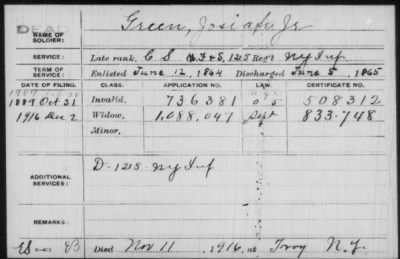 DEAD
NAME OF SOLDIER: Green, Josiah Jr
SERVICE: Late rank, C S F & S, 125 Reg't NY Inf
TERM OF SERVICE: Enlisted June 12, 1864 Discharged June 5, 1865
DATE OF FILING. CLASS. APPLICATION NO. LAW. CERTIFICATE NO.
1889 Oct 31 Invalid, 736381 508312
1916 Dec 2 Widow, 1,088,047 Sept 833-748
Minor,
ADDITIONAL SERVICES: D-125-NY Inf
REMARKS:
Died Nov 11, 1916, at Troy N.Y.